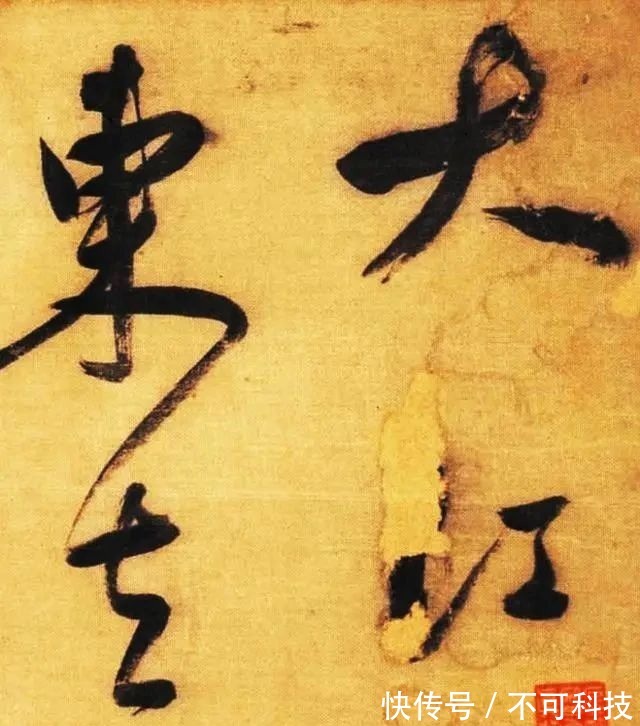 大江
東去
快传号 / 不可科技